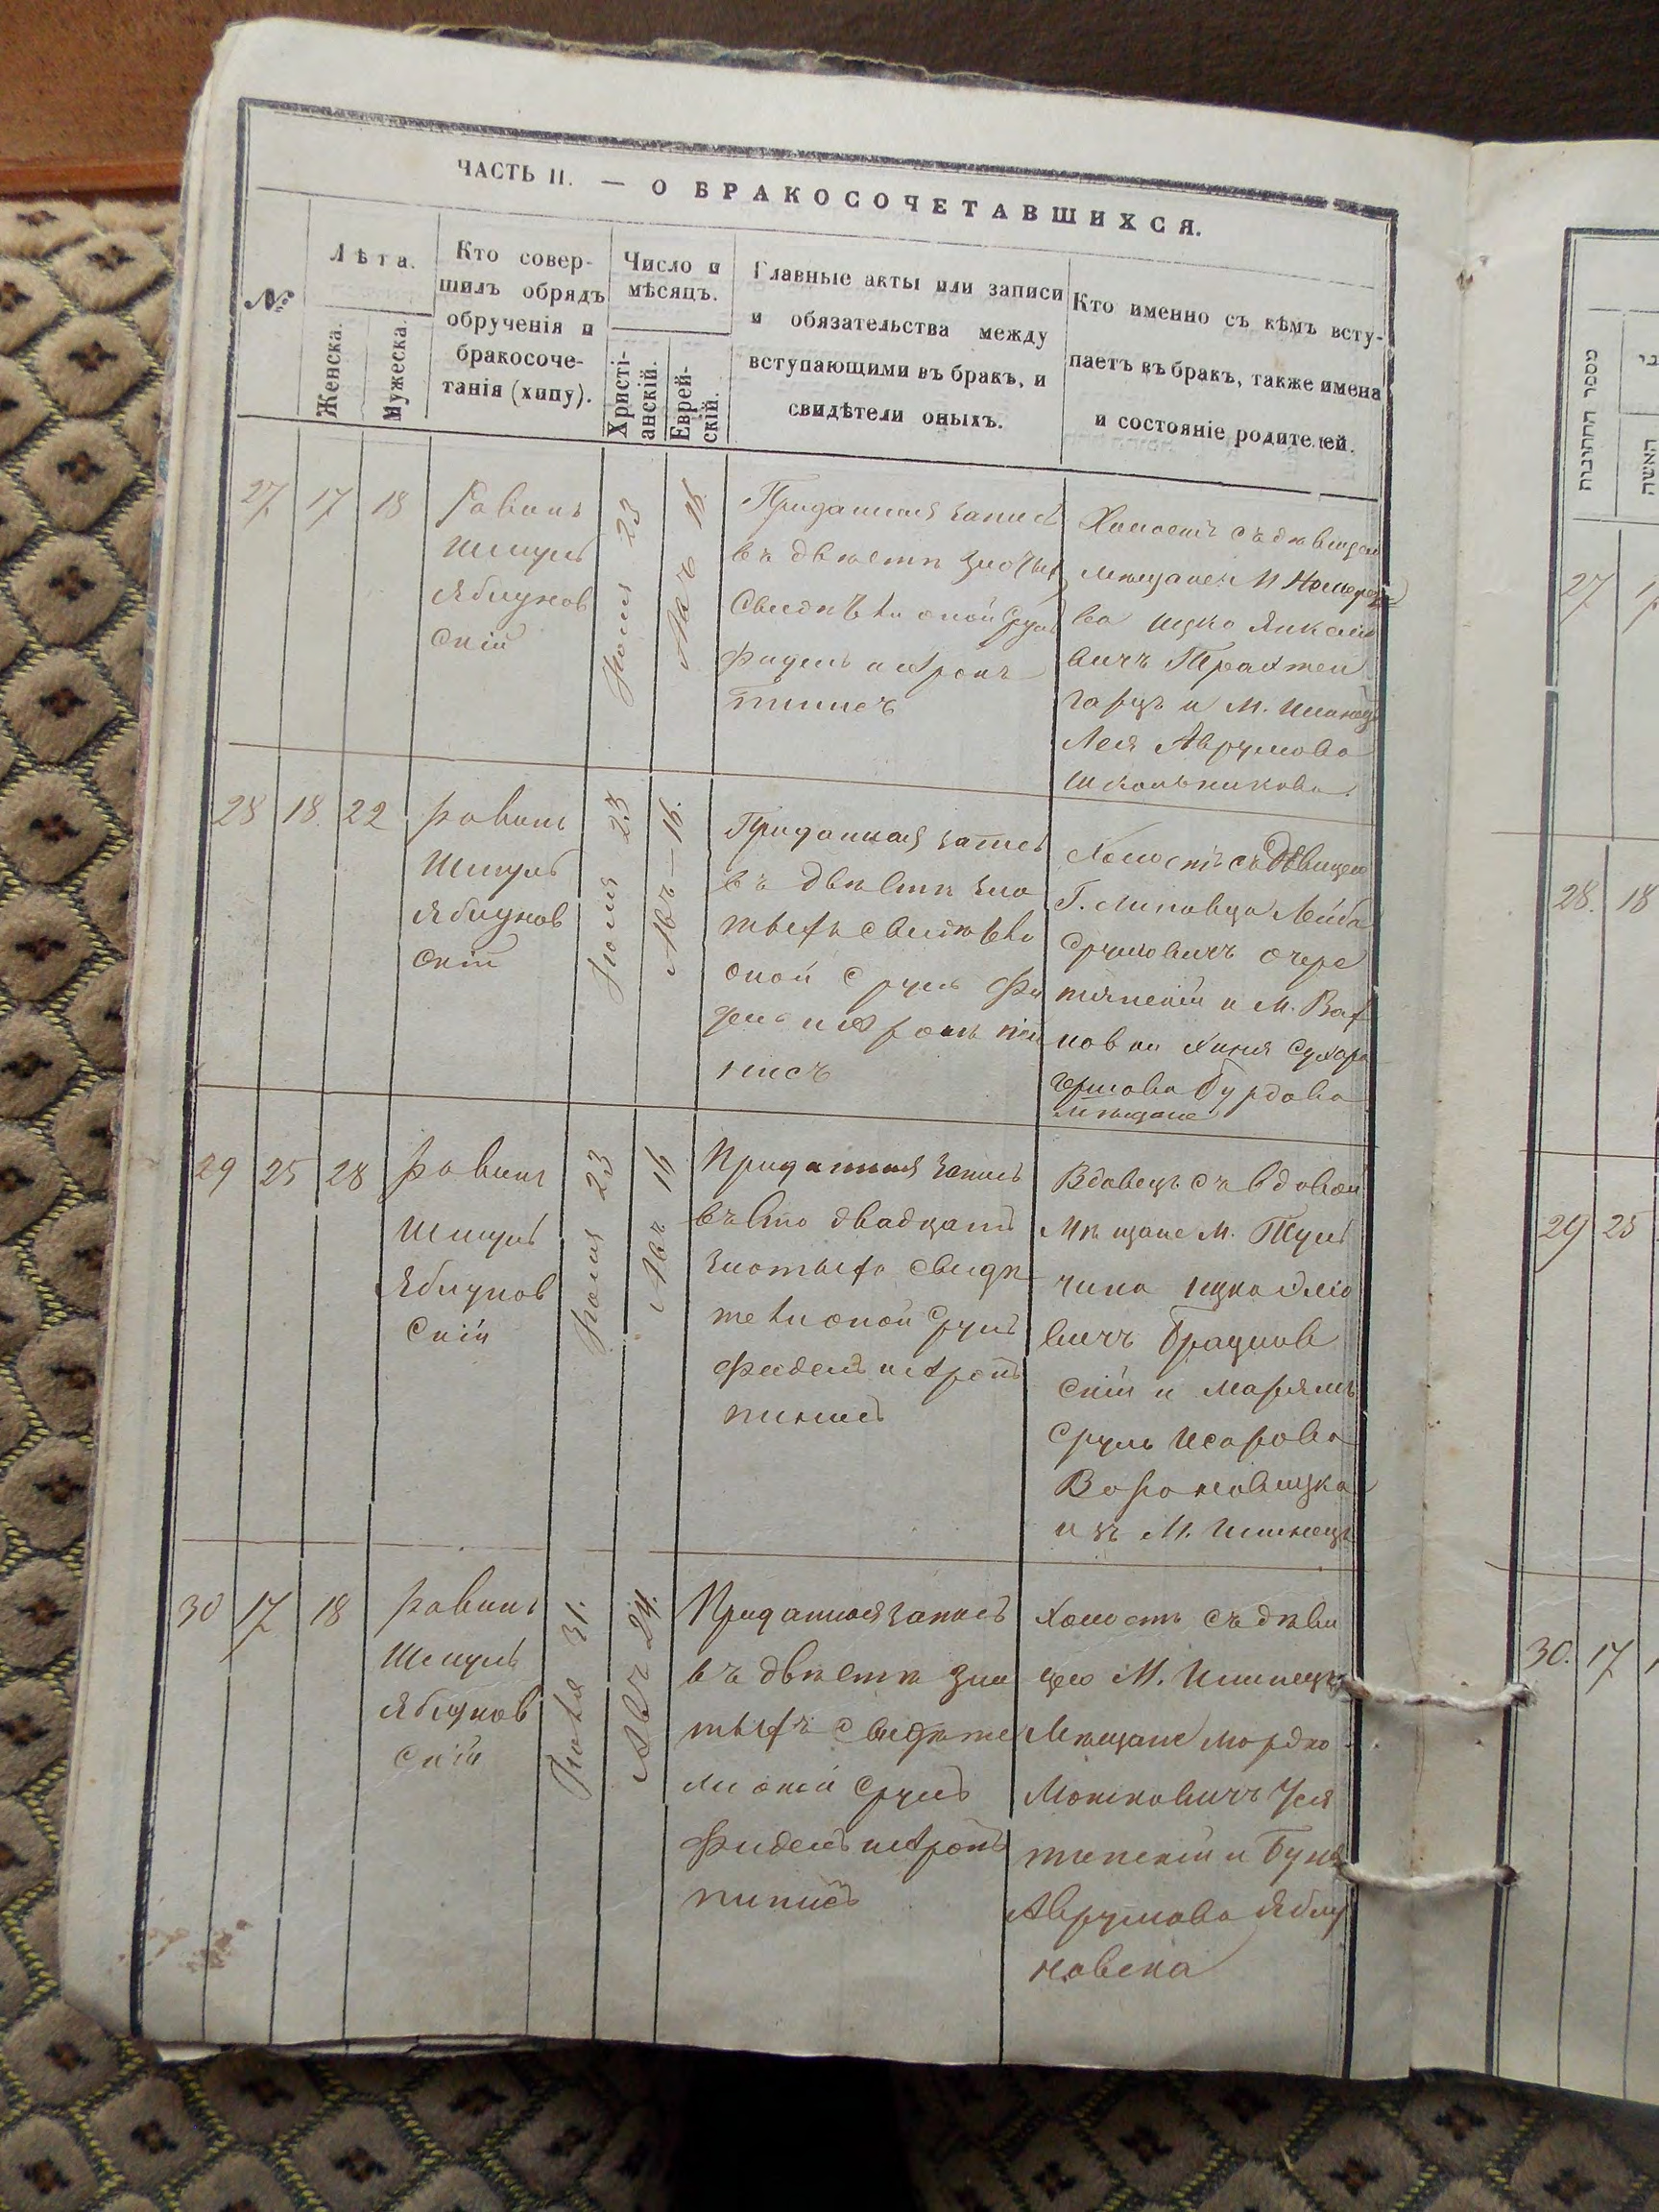 ЧАСТЬ II. — О БРАКОСОЧЕТАВШИХСЯ.
№
Лѣта.
Женска.
Мужеска.
Кто совер-
шилъ обрядъ
обрученія и
бракосоче-
танія (хипу).
Число и
мѣсяцъ.
Христі-
анскій.
Еврей-
скій.
Главные акты или записи
и обязательства между
вступающими въ бракъ, и
свидѣтели оныхъ.
Кто именно съ кѣмъ всту-
паетъ въ бракъ, также имена
и состояніе родителей.
27
17
18
Равинъ
Шмуль
Яблунов
скій
Іюля 23
Авъ 16.
Приданная запись
въ двѣсти злотых
Свидѣтели оной Сруль
Фидель и Аронъ
Холостъ съ дѣвицею
мѣщане М.
ва Ицко Янкелио
вичъ Трахтен
гарцъ и М. Илинец
Лея Аврумова
Школьникова.
28
18.
22
Равинъ
Шмуль
Яблунов
скій
Іюля 23
Авъ — 16.
Приданная запись
въ двѣсти зло
тыхъ свидѣтели
оной Сруль Фи
дель и Аронъ
Холостъ съ Дѣвицею
Г. Липовца Лейба
Срулиовичъ Очере
тянскій и М. Вах
новки Хиня
Бурдова
мѣщане
29
25
28
Равинъ
Шмуль
Яблунов
скій
Іюля 23
Авъ 16
Приданная запись
въ сто двадцать
злотыхъ свидѣ
тели оной Сруль
Фидель и Аронъ
Вдовецъ съ вдовою
Мѣщане М. Туль
чина Ицко
вичъ Брацлов
скій и Марьямъ
Сруль Исарова
Вороновицка
изъ М. Илинецъ
30
17
18
Равинъ
Шмуль
Яблунов
скій
Іюля 31.
Авъ 24.
Приданная запись
въ двѣсти зло
тыхъ свидѣте
ли оной Сруль
Фидель и Аронъ
Холостъ съ дѣви
цею М. Илинецъ
Мѣщане Мордко
Мошковичъ
и Буня
Аврумова Яблу
новска
27
28.
18
29
25
30.
17